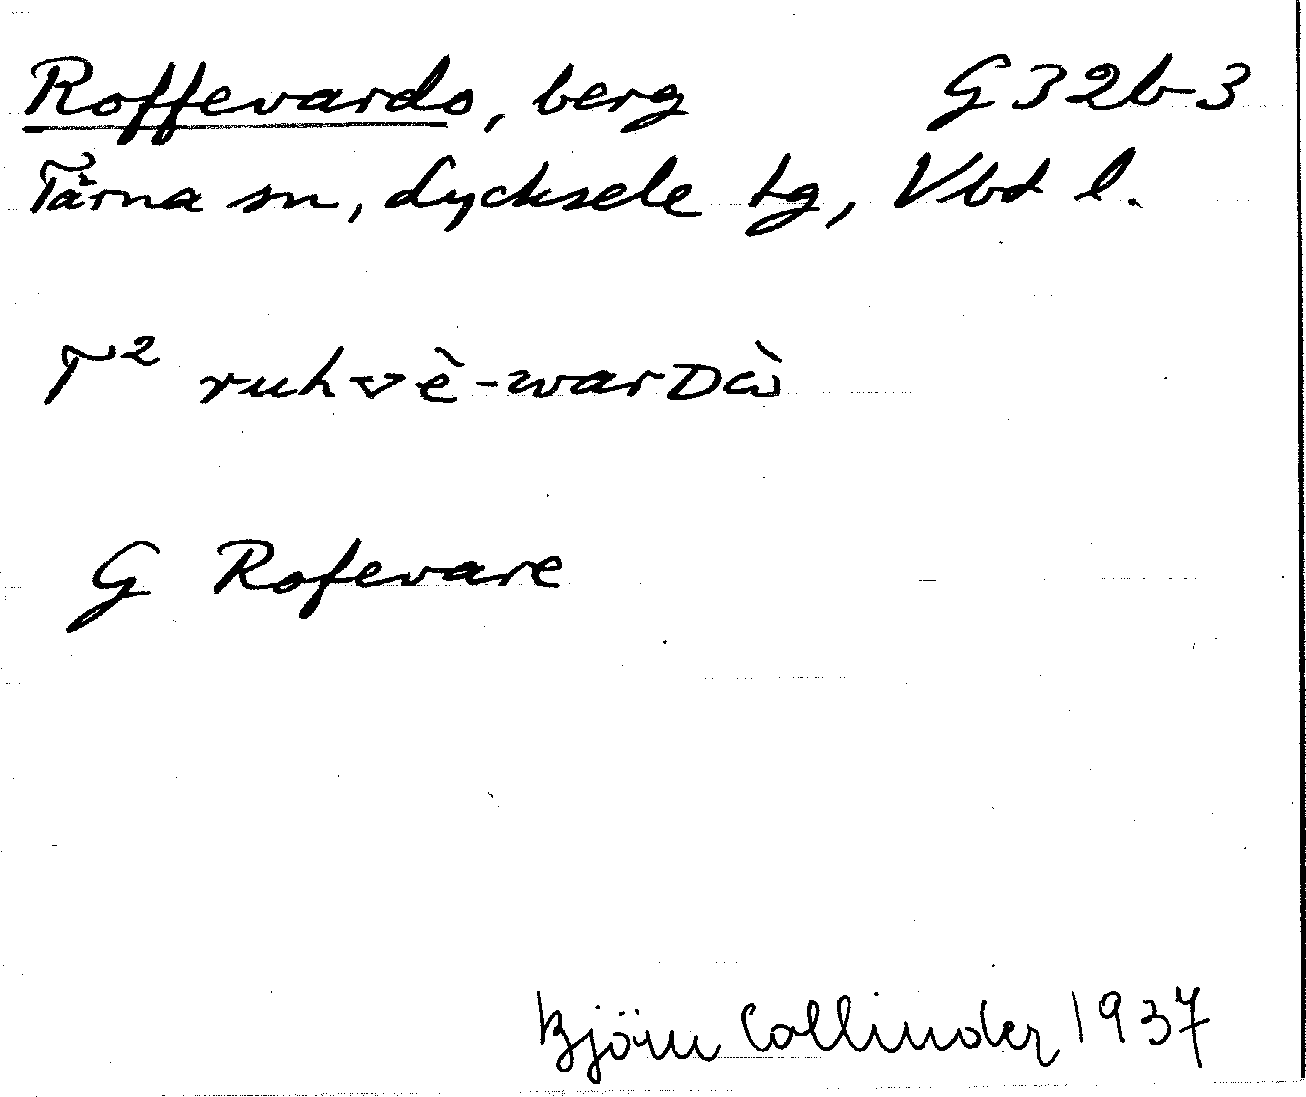 Roffevardo, berg G32b-3
Tärna sn, Lycksele tg, Vbd l.
T² ruhvè-warDὼ
G Rofevare
Björn Collinder 1937